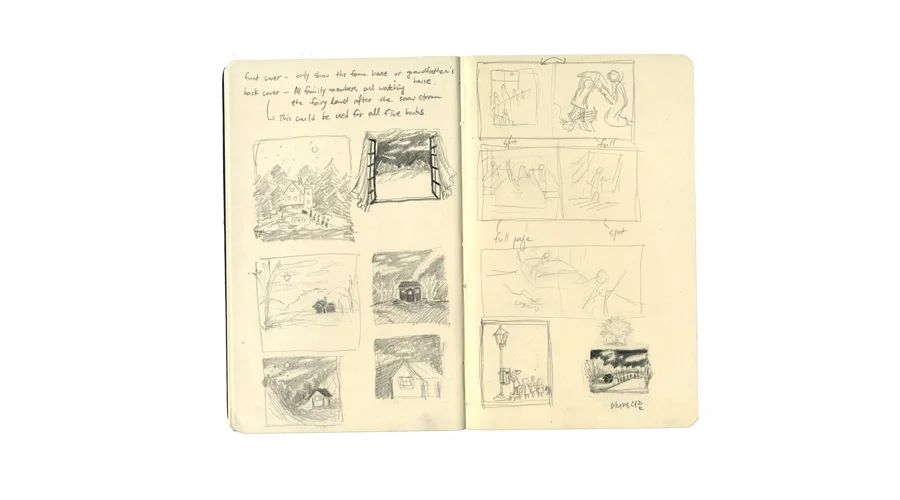 front cover – only show the farm house or grandfather's
house
back cover – All family members are watching
the fairy land after the snow storm
This could be used for all five books.
spot
full
full page
spot